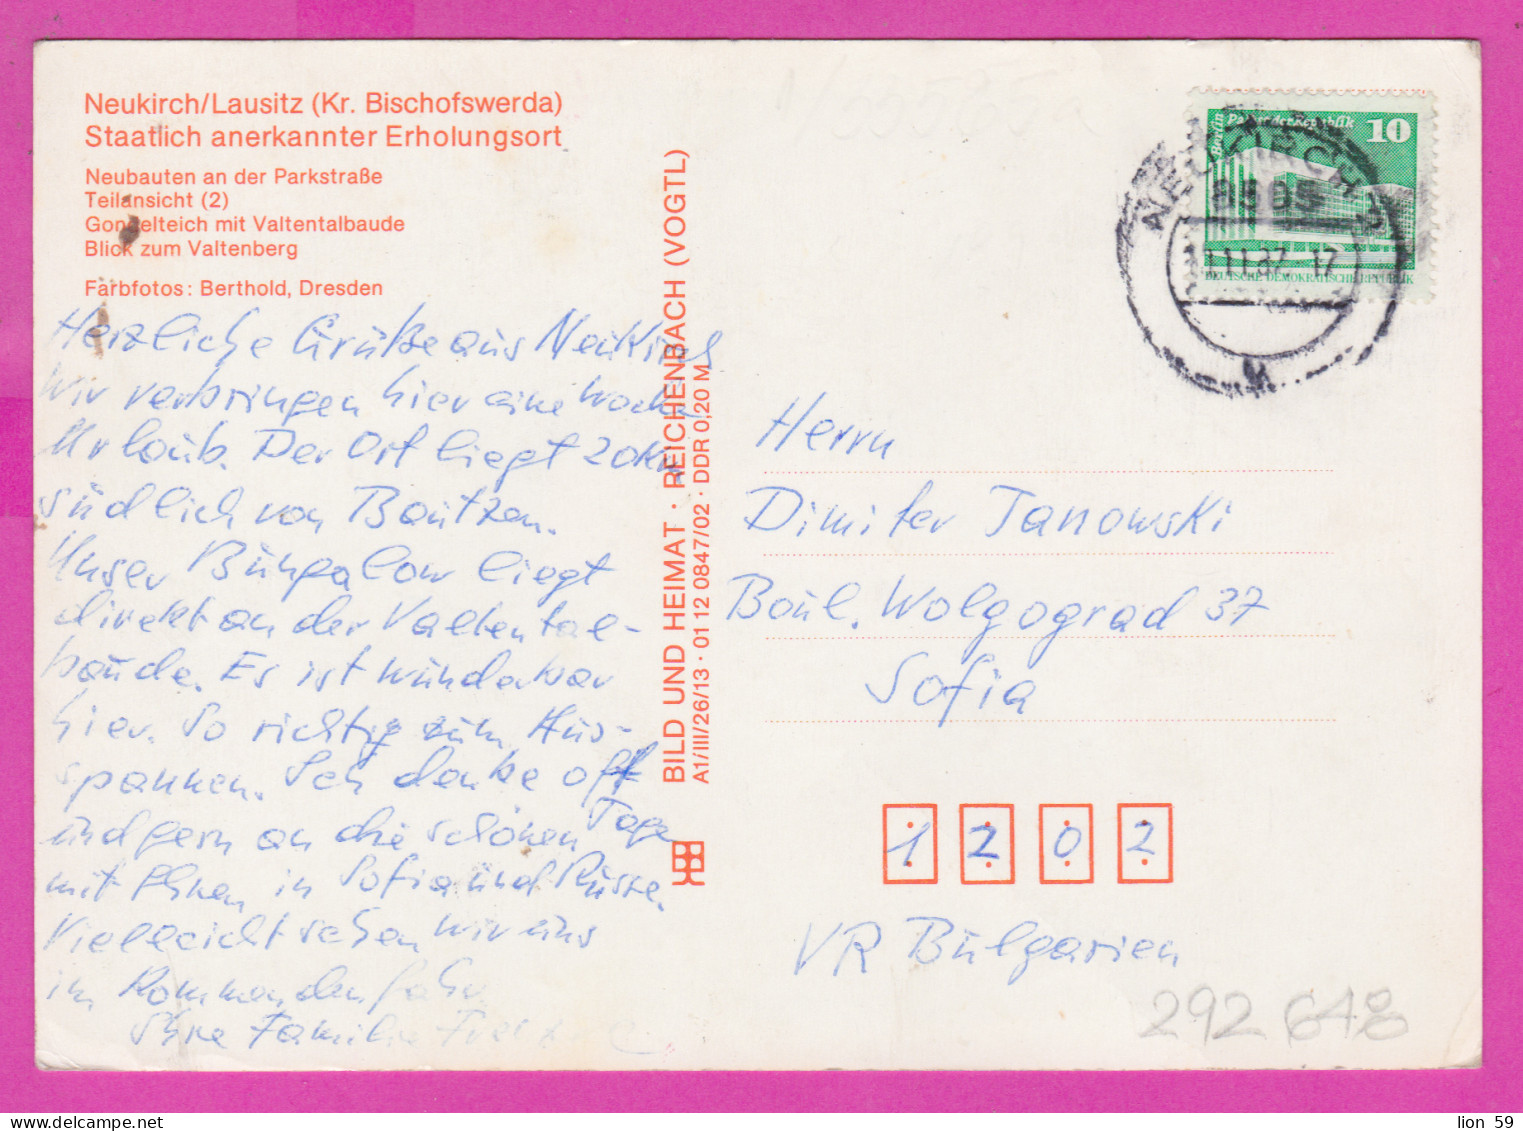 Neukirch/Lausitz (Kr. Bischofswerda)
Staatlich anerkannter Erholungsort
Neubauten an der Parkstraße
Teilansicht (2)
Gondelteich mit Valtentalbaude
Blick zum Valtenberg
Farbfotos: Berthold, Dresden
Herzliche Grüße aus Neukirch
Wir verbringen hier eine Woche
Urlaub. Der Ort liegt 20 km
südlich von Bautzen.
Unser Bungalow liegt
direkt an der Valtental-
baude. Es ist wunderbar
hier. So richtig zum Aus-
spannen. Ich denke oft
und gern an die schönen Tage
mit Ihnen in Sofia und Russe.
Vielleicht sehen wir uns
im kommenden Jahr.
Ihre Familie
BILD UND HEIMAT · REICHENBACH (VOGTL)
A1/III/26/13 · 01 12 0847/02 · DDR 0,20 M
Berlin Palast der Republik 10
DEUTSCHE DEMOKRATISCHE REPUBLIK
NEUKIRCH 2
8505
11.87-17
Herrn
Dimiter Janowski
Boul. Wolgograd 37
Sofia
1 2 0 2
VR Bulgarien
292 648
lion 59